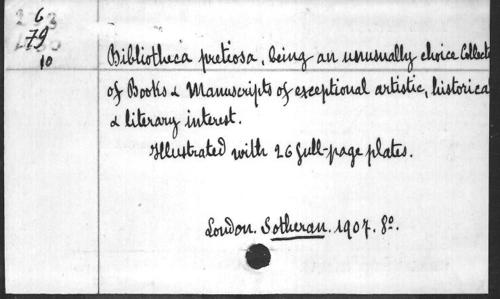 6
79
10
Bibliotheca pretiosa, being an unusually choice Collect
of Books & Manuscripts of exceptional artistic, historica
& literary interest.
Illustrated with 26 full-page plates.
London. Sotheran. 1907. 8o.